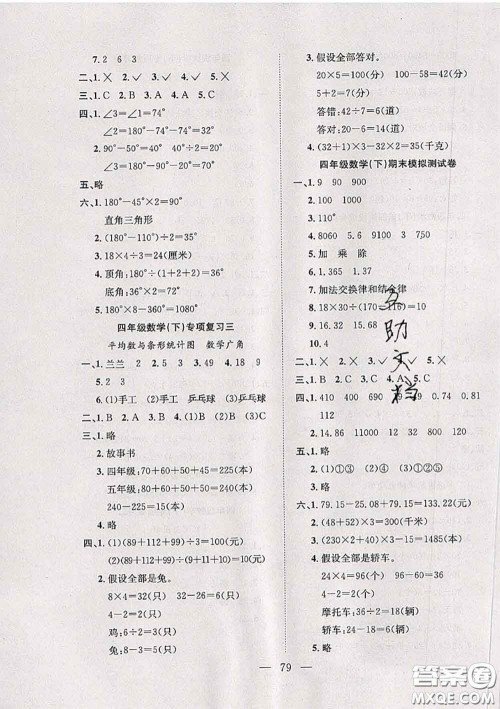 7. 2　6　3
二、1. ✕　2. ✓　3. ✓　4. ✓　5. ✕
三、1. C　2. B　3. A　4. C
四、1. ∠3=∠1=74°
∠2=∠4=106°
2. 90°-50°=40°
180°-40°=140°
3. 180°-90°-72°=18°
五、略
六、1. 180°-45°×2=90°
直角三角形
2. (180°-110°)÷2=35°
3. 18×4÷3=24(厘米)
4. 顶角:180°÷(1+4)=36°
底角:36°×2=72°
四年级数学(下)专项复习三
平均数与条形统计图　数学广角
一、1. 兰兰　2. 2　3. 4. 49　4. 18　9
5. 2　3
6. (1)手工　(2)手工　乒乓球　乒乓球
二、1. B　2. C　3. A　4. B
三、1. 略
2. 故事书
3. 四年级:70+60+50+45=225(本)
五年级:80+60+60+40=240(本)
240-225=15(本)
4. 略
四、1. (1)(89+112+99)÷3=100(元)
(2)(89+112+99)÷2=150(元)
2. 假设全部是兔。
8×4=32(只)　32-26=6(只)
4-2=2(只)
鸡:6÷2=3(只)
兔:8-3=5(只)
3. 假设全部答对。
20×5=100(分)　100-58=42(分)
5+2=7(分)
答错:42÷7=6(道)
答对:20-6=14(道)
4. (32+1)×32-32×32=32(千克)
四年级数学(下)期末模拟测试卷
一、1. 9　90　900
2. 10　13
3. 115
4. 8060　5.8　9100　3　750
5. 加　乘　除
6. 1.365　1.37
7. 加法交换律和结合律
8. 18×30÷(170-116)=10
9. 2
10. 略
二、1. ✓　2. ✕　3. ✓　4. ✓　5. ✕
三、1. B　2. C　3. C　4. A　5. C
四、1. 410　400　690　0.49　0.74　0.81
112
2. 14.89　11000　38　1300
五、1. 略
2. (1)①③　(2)②④
3. 略
六、1. 79.15-25.08+79.15=133.22(元)
2. (48+52)×3=300(千米)
3. (230×2+40)×3-15=1485(本)
4. 假设全部是轿车。
24×4=96(个)　96-60=36(个)
4-2=2(个)
摩托车:36÷2=18(辆)
轿车:24-18=6(辆)
5. 略
79
互助文档
答案圈
MXQE.COM